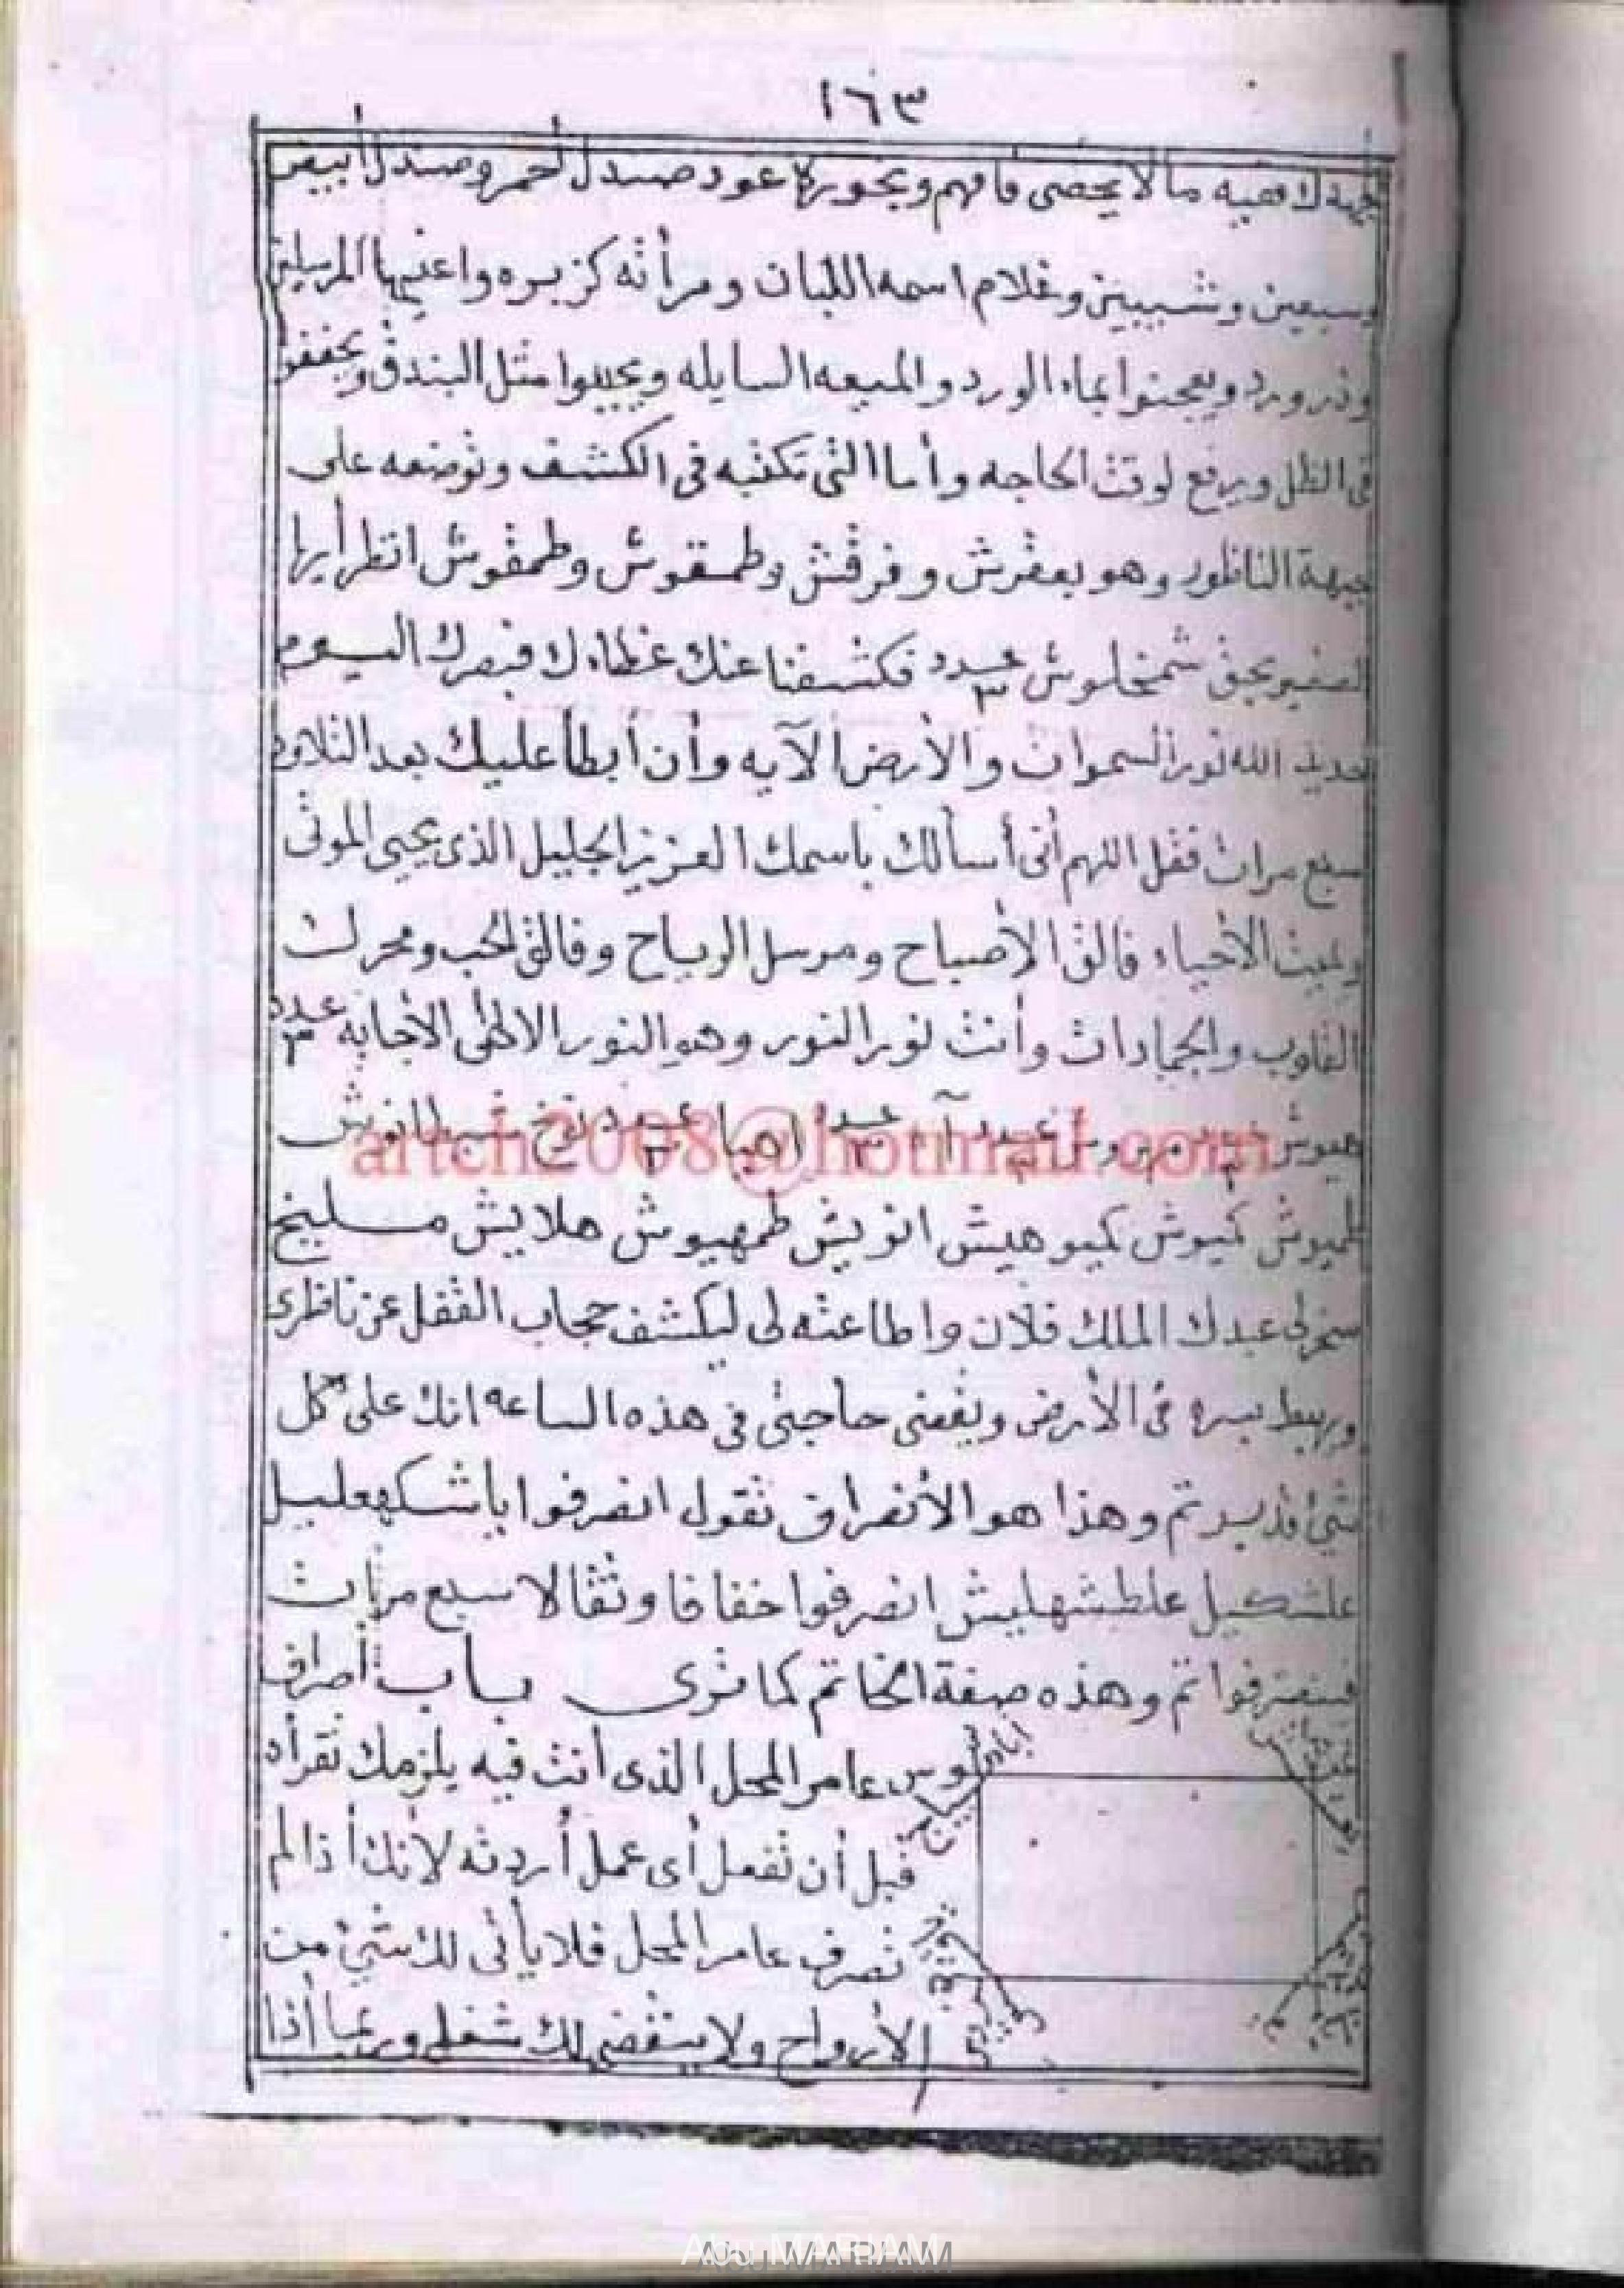 ١٦٣
ما لا يحصى فافهم وبخوره عود صندل احمر وصندل أبيض
وغلام اسمه اللبان ومرأته كزبره واعنيها
وبعجنوا بماء الورد والميعه السايله ويحببوا مثل البندق ويجففوا
فى الظل ويرفع لوقت الحاجه وأما التى تكتبه فى الكشف وتوضعه على
جبهة الناظور وهو بعقرش وفرقش وطمقوش وطمقوش انظر أيها
الصغير بحق شمخلوش عدد ٣ فكشفنا عنك غطاءك فبصرك اليوم
حديد الله نور السموات والأرض الآيه وأن أبطأ عليك بعد التلاوه
سبع مرات فقل اللهم أنى أسألك باسمك العزيز الجليل الذى يحيى الموتى
ويميت الأحياء فالق الأصباح ومرسل الرياح وفالق الحب ومحرك
القلوب والجمادات وأنت نور النور وهو النور الالهى الأجابه عدد ٣
artch2008@hotmail.com
كميوش كميو هيش انويش طمهيوش هلايش مسليخ
سخرلى عبدك الملك فلان واطاعته لى ليكشف حجاب القفل عن ناظرى
فى الأرض ويقضى حاجتى فى هذه الساعه انك على كل
شئ قدير تم وهذا هو الأنصراف تقول انصرفوا ياشكهعليل
علشكيل علطشهليش انصرفوا خفافا وثقالا سبع مرات
فينصرفوا تم وهذه صفة الخاتم كما ترى باب أصراف
عامر المحل الذى أنت فيه يلزمك تقرأه
قبل أن تفعل أى عمل أردته لأنك أذا لم
تصرف عامر المحل فلا يأتى لك شئ من
الأرواح ولا ينقضى لك شغل وربما أذا
Abu MARIAM